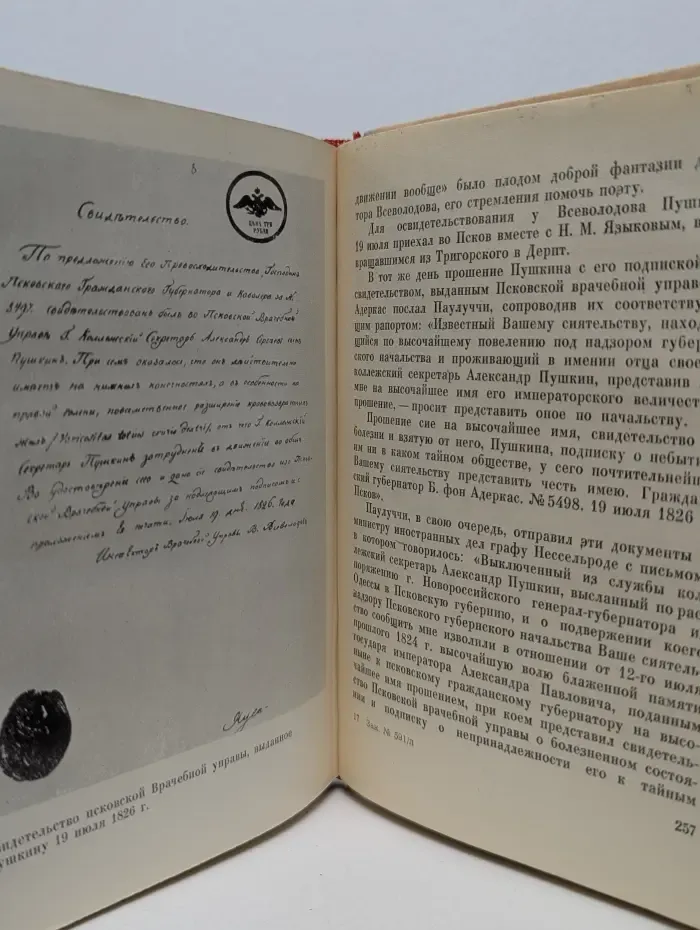 Свидѣтельство.
ЦѢНА ТРИ
РУБЛИ
По предложенію Его Превосходительства, Господина
Псковского Гражданского Губернатора и Кавалера за №
5497. свидѣтельствованъ былъ во Псковской Врачебной
Управѣ Г. Коллежскій Секретарь Александръ Сергѣевъ сынъ
Пушкинъ. При семъ оказалось, что онъ дѣйствительно
имѣетъ на нижнихъ конечностяхъ, а въ особенности на
правой голени, повсемѣстное расширеніе крововозвратныхъ
жилъ
отъ чего Г. Коллежскій
Секретарь Пушкинъ затрудненъ въ движеніи во обще.
Во удостовѣреніе сего и дано сіе свидѣтельство изъ Псков
ской Врачебной Управы за надлежащимъ подписомъ и съ
приложеніемъ ея печати. Іюля 19 дня 1826. года
Инспекторъ Врачебной Управы В. Всеволодовъ
видетельство псковской Врачебной управы, выданное
ушкину 19 июля 1826 г.
движении вообще» было плодом доброй фантазии д
тора Всеволодова, его стремления помочь поэту.
Для освидетельствования у Всеволодова Пушк
19 июля приехал во Псков вместе с Н. М. Языковым, в
вращавшимся из Тригорского в Дерпт.
В тот же день прошение Пушкина с его подпиской
свидетельством, выданным Псковской врачебной управо
Адеркас послал Паулуччи, сопроводив их соответству
щим рапортом: «Известный Вашему сиятельству, наход
щийся по высочайшему повелению под надзором губер
ского начальства и проживающий в имении отца свое
коллежский секретарь Александр Пушкин, представив
мне на высочайшее имя его императорского величест
прошение, — просит представить оное по начальству.
Прошение сие на высочайшее имя, свидетельство
болезни и взятую от него, Пушкина, подписку о небыт
им ни в каком тайном обществе, у сего почтительнейш
Вашему сиятельству представить честь имею. Гражда
ский губернатор Б. фон Адеркас. № 5498. 19 июля 1826
Псков».
Паулуччи, в свою очередь, отправил эти документы
министру иностранных дел графу Нессельроде с письмом
в котором говорилось: «Выключенный из службы кол
лежский секретарь Александр Пушкин, высланный по рас
поряжению г. Новороссийского генерал-губернатора и
Одессы в Псковскую губернию, и о подвержении коего
надзору Псковского губернского начальства Ваше сиятель-
ство сообщить мне изволили в отношении от 12-го июля
прошлого 1824 г. высочайшую волю блаженной памяти
государя императора Александра Павловича, поданным
ныне к псковскому гражданскому губернатору на высо-
чайшее имя прошением, при коем представил свидетель-
ство Псковской врачебной управы о болезненном состоя-
нии и подписку о непринадлежности его к тайным
17 Зак. № 591/п
257